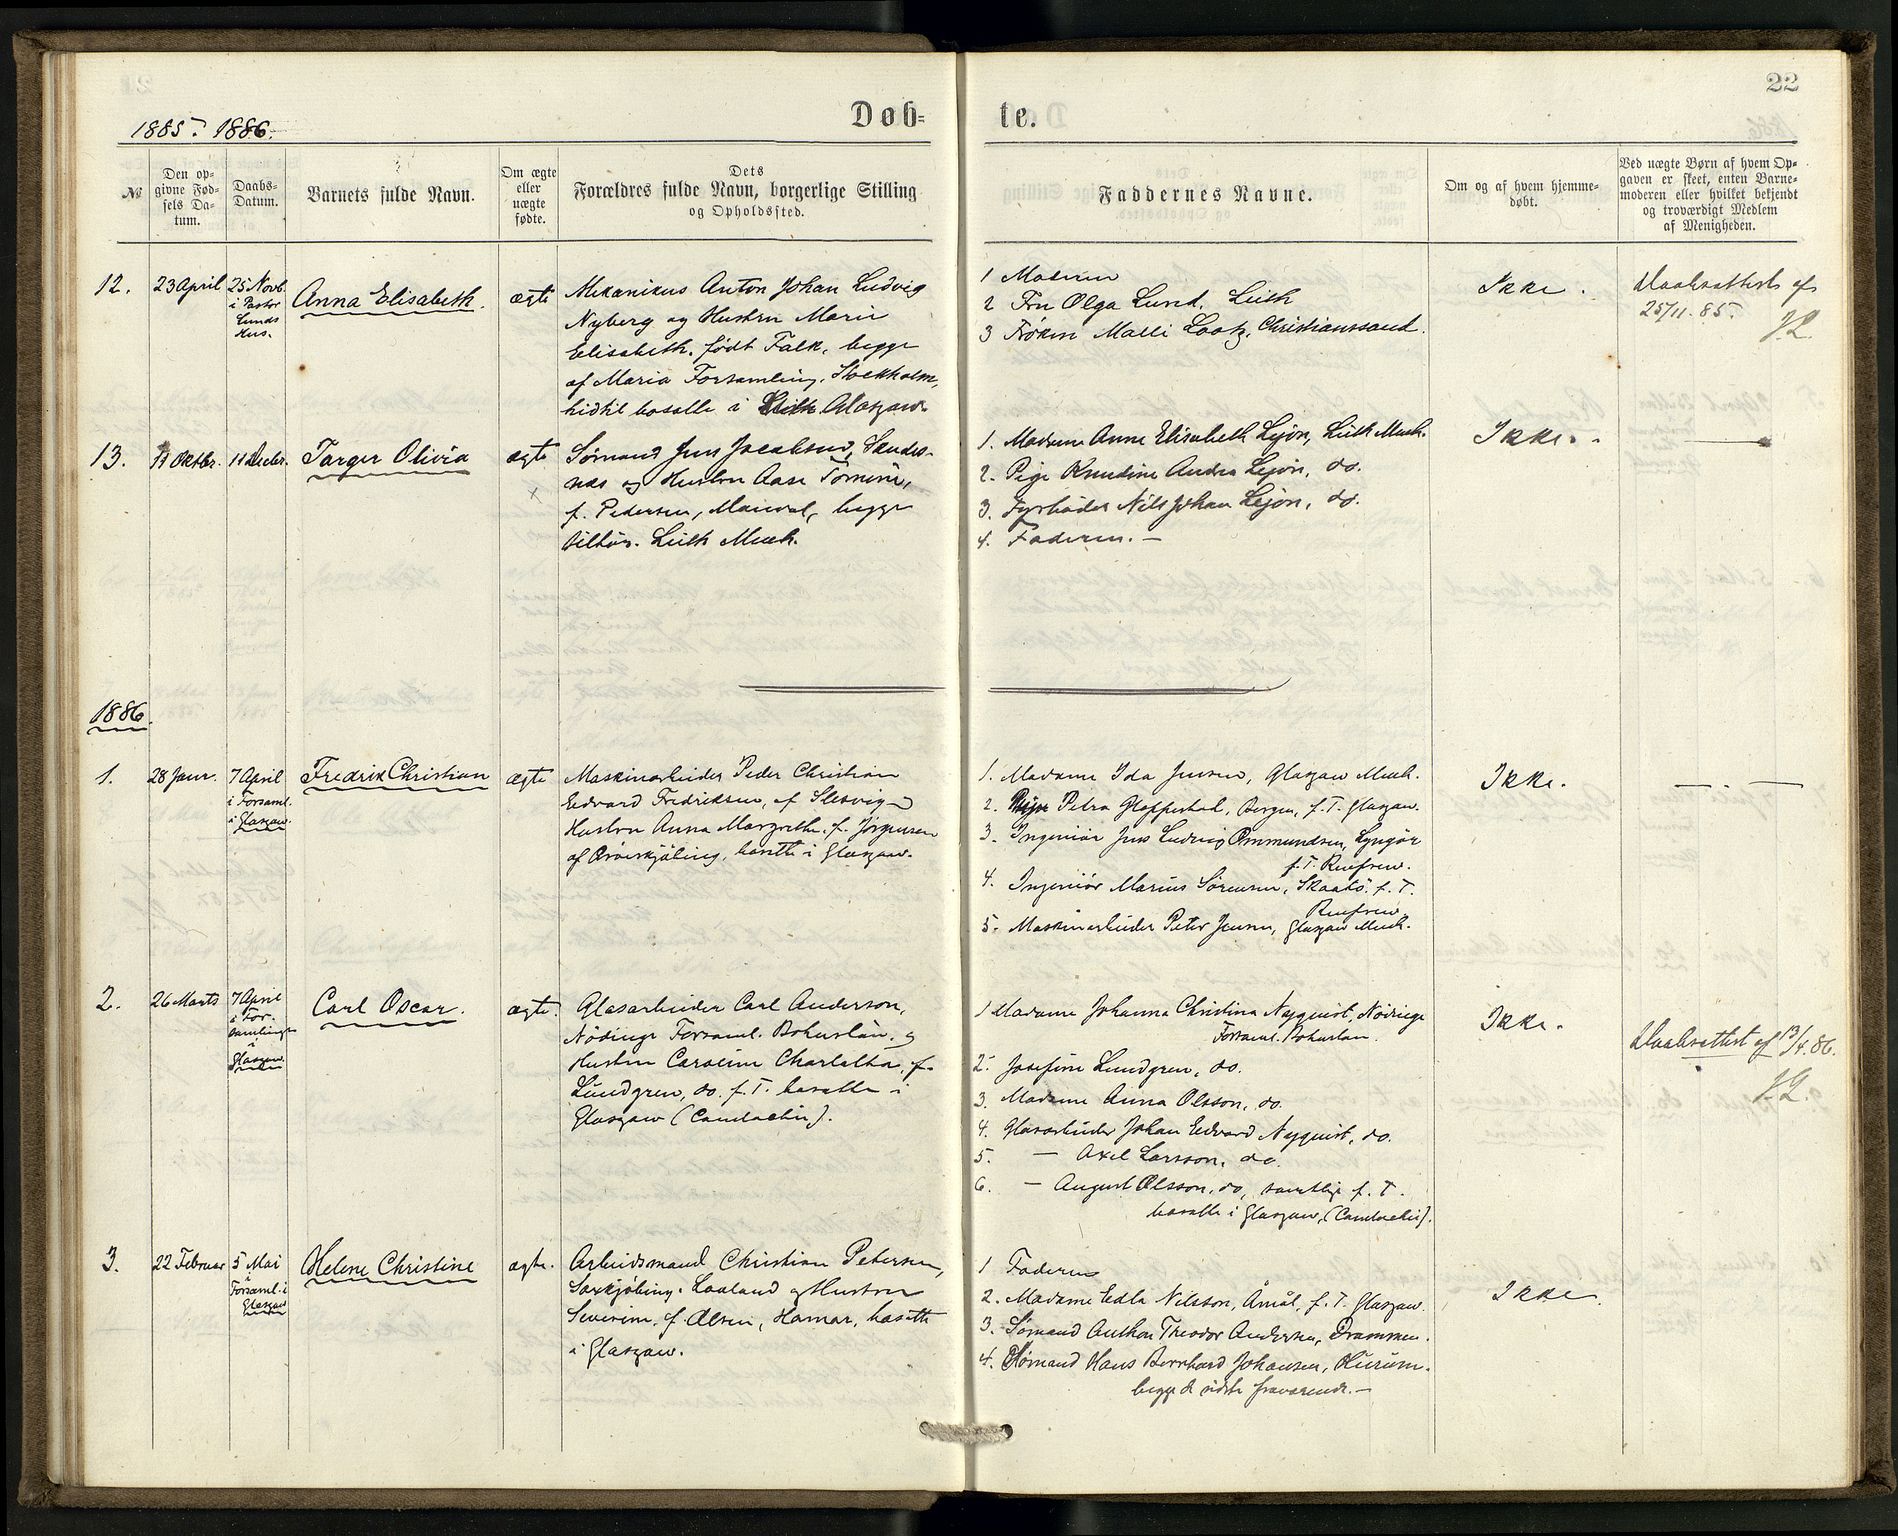 22
1885. 1886.
Døb-
te.
№
Den op-
givne Fød-
sels Da-
tum.
Daabs-
Datum.
Barnets fulde Navn.
Om ægte
eller
uægte
fødte.
Dets
Forældres fulde Navn, borgerlige Stilling
og Opholdssted.
Faddernes Navne.
Om og af hvem hjemme-
døbt.
Ved uægte Børn af hvem Op-
gaven er skeet, enten Barne-
moderen eller hvilket bekjendt
og troværdigt Medlem
af Menigheden.
12.
23 April
25 Novb.
i Pastor
Lunds
Hus.
Anna Elisabeth.
ægte
Mekanikus Anton Johan Ludvig
Nyberg og Hustru Maria
Elisabeth, født Falk, begge
af Maria Forsamling, Stockholm,
hidtil bosatte i Glasgow.
1 Moderen
2 Fru Olga Lund, Leith
3 Frøken Malli Lootz, Christianssand.
Ikke.
Daabsattest af
25/11. 85.
J.L.
13.
11 Oktbr.
11 Decbr.
Targer Olivia
ægte
Sømand Jens Jacobsen, Sandes-
næs og Hustru Aase Tomine,
f. Pedersen, begge
tilhør. Leith Meth.
1. Madame Anne Elisabeth Lejon, Leith Meth.
2. Pige Knudine Andrea Lejon, do.
3. Fyrbøder Nils Johan Lejon, do.
4. Faderen. —
Ikke.
—
1886.
1.
28 Janr.
7 April
i Forsaml.
i Glasgow.
Fredrik Christian
ægte
Maskinarbeider Peder Christian
Edvard Fredriksen, af Slesvig og
Hustru Anna Margrethe, f. Jørgensen
af Ærøeskjøbing, bosatte i Glasgow.
1. Madame Ida Jensen, Glasgow Meth.
2. Pige Petra Gloppestad, Bergen, f. T. Glasgow.
3. Ingeniør Jens Ludvig Ommundsen, Lyngør
f. T. Renfrew.
4. Ingeniör Marius Sörensen, Skaatö. f. T.
Renfrew.
5. Maskinarbeider Peter Jensen, Glasgow Meth.
Ikke.
— . —
2.
26 Marts
7 April
i For-
samlings
i
Glasgow
Carl Oscar.
ægte.
Glasarbeider Carl Anderson,
Nödinge Forsaml. Bohuslän. og
Hustru Caroline Charlotta, f.
Lundgren, do. f. T. bosatte i
Glasgow (Camlachie).
1 Madame Johanna Christina Nyquist, Nödinge
Forsaml. Bohuslan.
2. Josefine Lundgren, do.
3. Madame Anna Olsson, do.
4. Glasarbeider Johan Edvard Nyquist, do.
5. — Axel Larsson, do.
6. — August Olsson, do, samtlige f. T.
bosatte i Glasgow, (Camlachie).
Ikke.
Daabsattest af 13/4. 86.
J.L.
3.
22 Februar
5 Mai
i
Forsaml. i
Glasgow
Helene Christine
ægte.
Arbeidsmand Christian Petersen,
Saxkjøbing, Laaland og Hustru
Severine, f. Olsen, Hamar, bosatte
i Glasgow.
1 Faderen
2. Madame Edla Nilsson, Åmål, f. T. Glasgow.
3. Sømand Anthon Theodor Andersen, Drammen.
4. Sømand Hans Bernhard Johansen, Hurum.
begge de sidste fraværende. —
Ikke.